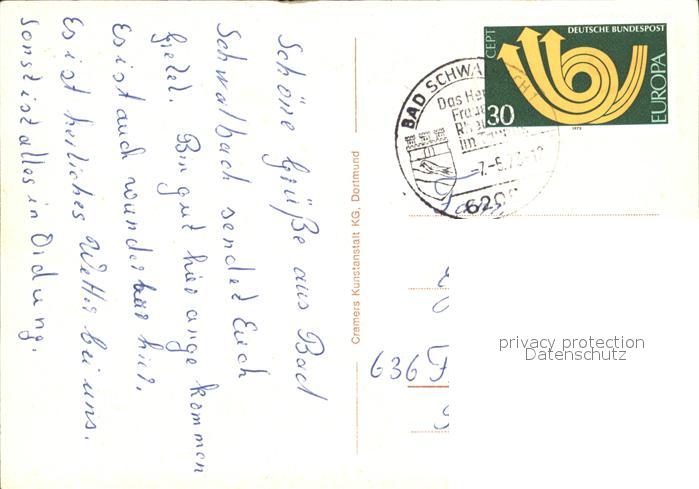 Schöne Grüße aus Bad
Schwalbach sendet Euch
Bin gut hier angekommen
Es ist auch wunderbar hier.
Es ist herliches Wetter bei uns.
sonst ist alles in Ordung.
Cramers Kunstanstalt KG, Dortmund
CEPT
DEUTSCHE BUNDESPOST
EUROPA
30
1973
BAD SCHWALBACH 1
Das
im
7.-5.73-
6208
636 F
privacy protection
Datenschutz